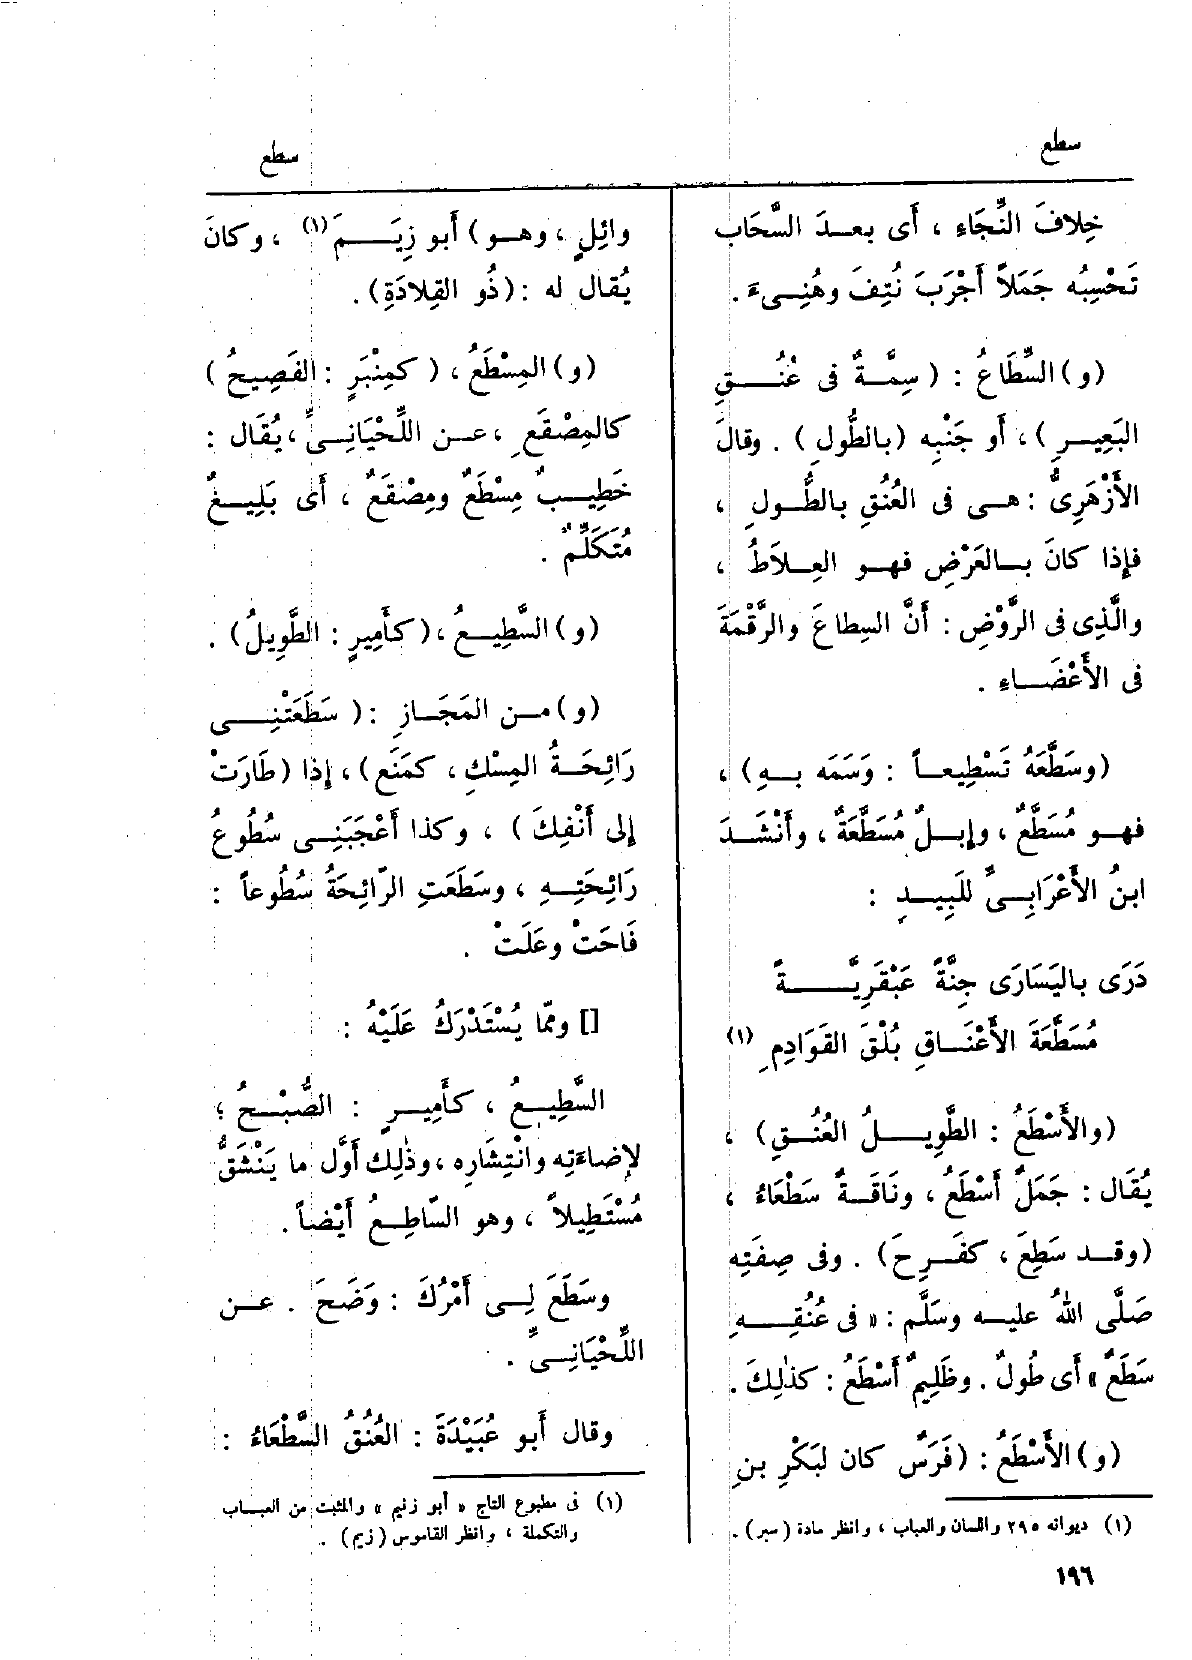 سطع
سطع
خِلافَ النِّجَاءِ ، أَى بعدَ السَّحَاب
تَحْسِبُه جَمَلاً أَجْرَبَ نُتِفَ وهُنِىءَ .
(و) السِّطَاعُ : ( سِمَةٌ فى عُنُقِ
البَعِيرِ ) ، أَو جَنْبِه (بالطُّولِ ) . وقالَ
الأَزْهَرِىُّ : هى فى العُنُقِ بالطُّولِ ،
فإِذا كانَ بالعَرْضِ فهو العِلاَطُ ،
والَّذِى فى الرَّوْضِ : أَنَّ السِطاعَ والرَّقْمَةَ
فى الأَعْضَاءِ .
(وسَطَّعَهُ تَسْطِيعاً : وَسَمَه بهِ) ،
فهو مُسَطَّعٌ ، وإِبلٌ مُسَطَّعَةٌ ، وأَنْشَدَ
ابنُ الأَعْرَابِىِّ للَبِيدِ :
دَرَى باليَسَارَى جِنَّةً عَبْقَرِيَّةً
مُسَطَّعَةَ الأَعْنَاقِ بُلْقَ القَوَادِمِ (١)
(والأَسْطَعُ : الطَّوِيلُ العُنُقِ) ،
يُقَال : جَمَلٌ أَسْطَعُ ، ونَاقَةٌ سَطْعَاءُ ،
(وقد سَطِعَ ، كفَرِحَ) . وفى صِفَتِه
صَلَّى اللهُ عليه وسَلَّم : « فى عُنُقِهِ
سَطَعٌ » أَى طُولٌ . وظَلِيمٌ أَسْطَعُ : كذٰلِكَ .
(و) الأَسْطَعُ : (فَرَسٌ كان لبَكْرِ بنِ
(١) ديوانه ٢٩٥ واللسان والعباب ، وانظر مادة (سبر) .
١٩٦
وائِلٍ ، وهو ) أَبو زِيَمَ (١) ، وكانَ
يُقال له : (ذُو القِلادَةِ) .
(و) المِسْطَعُ ، ( كمِنْبَرٍ : الفَصِيحُ )
كالمِصْقَعِ ، عن اللِّحْيَانِىِّ ، يُقَال :
خَطِيبٌ مِسْطَعٌ ومِصْقَعٌ ، أَى بَلِيغٌ
مُتَكَلِّمٌ .
(و) السَّطِيعُ ، (كأَمِيرٍ : الطَّوِيلُ) .
(و) من المَجَازِ : ( سَطَعَتْنِى
رَائِحَةُ المِسْكِ ، كمَنَع) ، إِذا (طَارَتْ
إِلى أَنْفِكَ ) ، وكذا أَعْجَبَنِى سُطُوعُ
رَائِحَتِهِ ، وسَطَعَتِ الرّائِحَةُ سُطُوعاً :
فَاحَتْ وعَلَتْ .
[] وممّا يُسْتَدْرَكُ عَلَيْهُ :
السَّطِيعُ ، كأَمِيرٍ : الصُّبْحُ ؛
لإِضاءَتِه وانْتِشَارِه ، وذٰلِك أَوَّل ما يَنْشَقُّ
مُسْتَطِيلاً ، وهو السّاطِعُ أَيْضاً .
وسَطَعَ لِى أَمْرُكَ : وَضَحَ . عن
اللِّحْيَانِىِّ .
وقال أَبو عُبَيْدَةَ : العُنُقُ السَّطْعَاءُ :
(١) فى مطبوع التاج « أبو زنيم » والمثبت من العباب
والتكملة ، وانظر القاموس (زيم) .